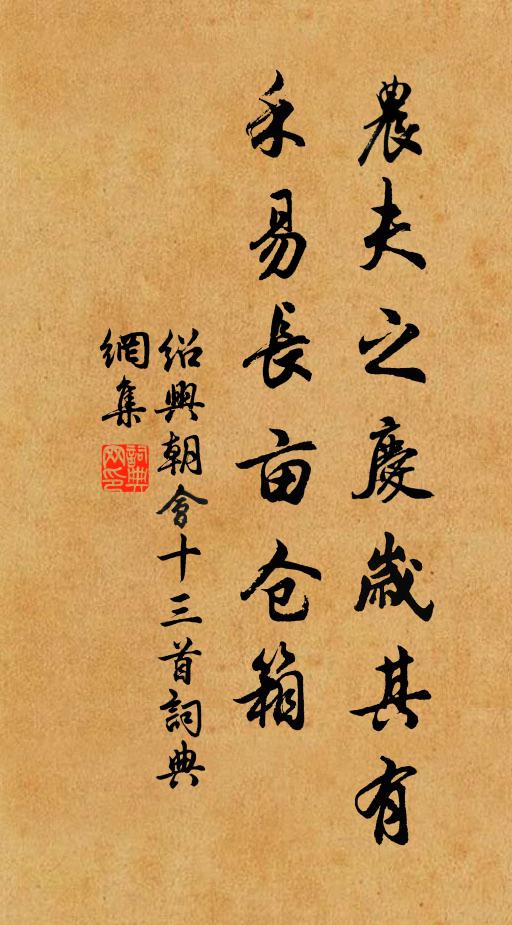 農夫之慶歲其有
禾易長亩仓箱
紹興朝會十三首詞典
網集
詞典網印